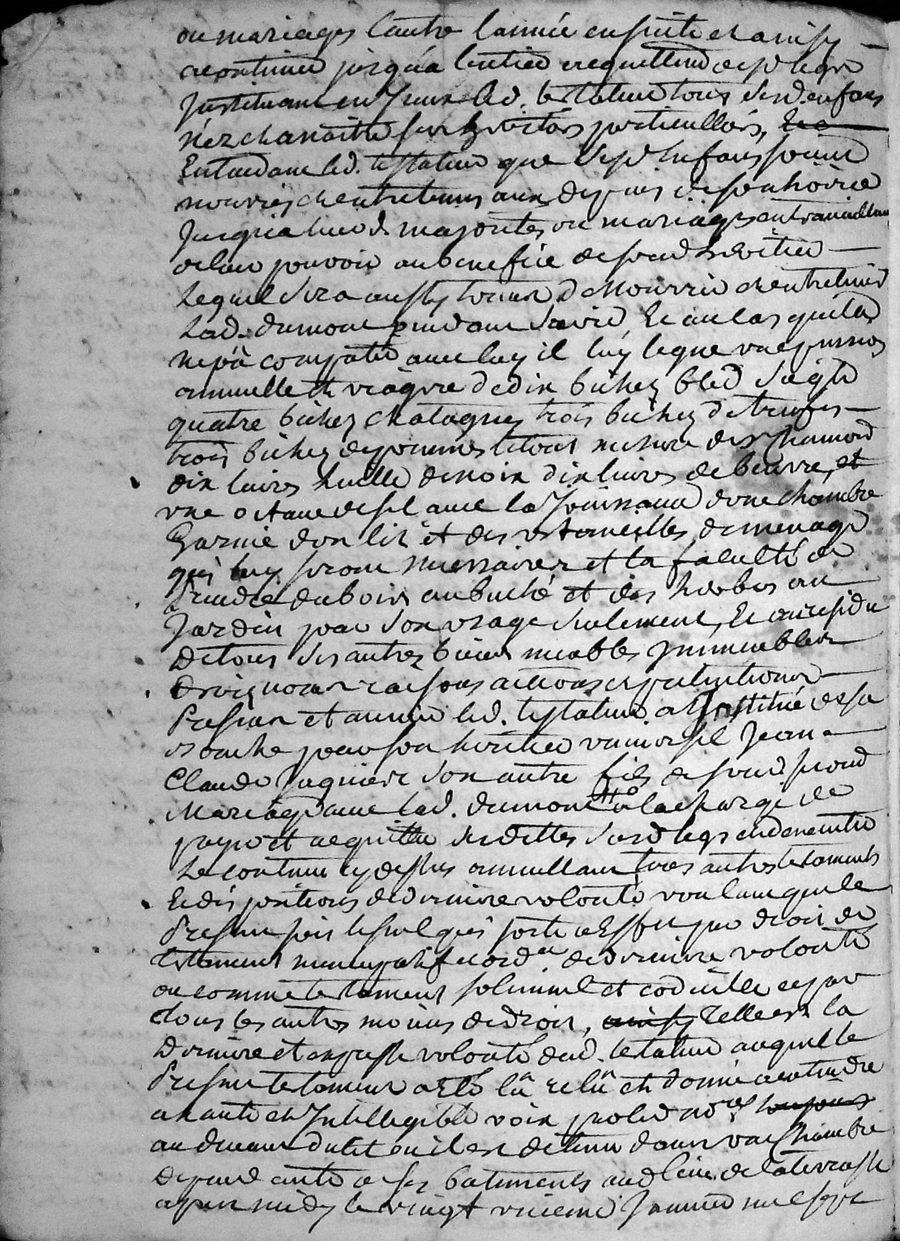 ou mariages l'autre l'année ensuite et ainsy
a continuer jusqu'a l'entier acquittement desd. legs
Instituant en yceux led. testateur tous sesd. enfans
nez et a naitre ses heritiers particulliers,
Entendant led. testateur que sesd. enfans soient
nourris et entretenus aux depens de son hoirie
jusqu'a leurs majorités ou mariages en travaillant
de leur pouvoir au benefice de sond. heritier
Lequel sera aussy tenu de Nourrir et entretenir
Lad. Dumont pendant sa vie, Et au cas qu'elle
ne pût compatir avec luy il luy legue une pension
annuelle et viagere de dix bichez bled seigle
quatre bichez chatagnes trois bichez de trufes
trois bichez de pommes le tout mesure de St Chamond
dix livres huille de noix dix livres de beurre, et
une octave de sel avec la Jouissance d'une chambre
Garnie d'un lit et des ustanciles de menage
qui luy seront necessaires et la faculté de
prendre du bois au buché et des herbes au
Jardin pour son usage seulement, Et au residu
De tous ses autres biens meubles Immeubles
Droits noms raisons actions et pretentions
Presens et avenir led. testateur a Institué de sa
bouche pour son heritier universel Jean
Claude son autre fils de sond. second
Mariage avec lad. Dumont a la charge de
payer et acquitter ses dettes sesd. legs et d'executer
Le contenu cy dessus annullant tous autres testaments
Et dispositions de derniere volonté voulant que le
Present soit le seul qui sorte a Effet par droit de
testament nuncupatif et ord.re de derniere volonté
ou comme testament solemnel et codicille et par
tous les autres moiens de droit, ainsy telle est la
Derniere et expresse volonté dud. testateur auquel le
Present testament a eté lû relû et donné a entendre
a haute et Intellegible voix par led. no.re toujours
au devant du lit ou il est detenu dans une Chambre
de ses batiments aud. lieu de
apres midy le vingt uniéme Janvier mil sept